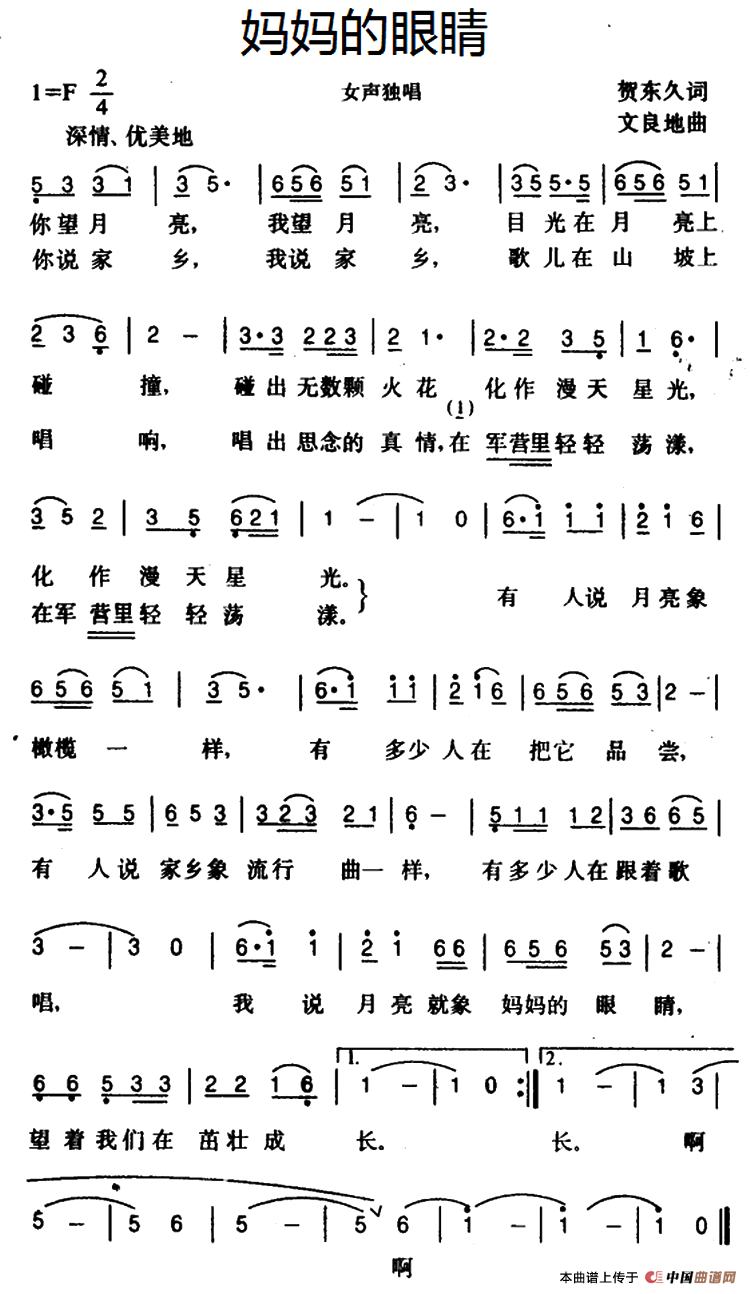 妈妈的眼睛
1=F 2/4
女声独唱
贺东久词
深情、优美地
文良地曲
5 3 3 1 | 3 5· | 6 5 6 5 1 | 2 3· | 3 5 5·5 | 6 5 6 5 1 |
你望月 亮, 我望月 亮, 目光在月 亮上
你说家 乡, 我说家 乡, 歌儿在山 坡上
2 3 6 | 2 － | 3·3 2 2 3 | 2 1· | 2·2 3 5 | 1 6· |
碰 撞, 碰出无数颗火花 化作漫天星光,
(1)
唱 响, 唱出思念的真情,在军营里轻轻荡漾,
3 5 2 | 3 5 6 2 1 | 1 － | 1 0 | 6·i i i | 2 i 6 |
化 作 漫天星 光。
有 人说月亮象
在军营里轻轻荡 漾。
6 5 6 5 1 | 3 5· | 6·i i i | 2 i 6 | 6 5 6 5 3 | 2 － |
橄榄一 样, 有 多少人在 把它品 尝,
3·5 5 5 | 6 5 3 | 3 2 3 2 1 | 6 － | 5 1 1 1 2 | 3 6 6 5 |
有 人说 家乡象 流行 曲一样, 有多少人在跟着歌
3 － | 3 0 | 6·i i | 2 i 6 6 | 6 5 6 5 3 | 2 － |
唱, 我 说 月亮就象 妈妈的眼 睛,
1.
2.
6 6 5 3 3 | 2 2 1 6 | 1 － | 1 0 :‖ 1 － | 1 3 |
望着我们在 茁壮成 长。 长。 啊
5 － | 5 6 | 5 － | 5 ∨ 6 | i － | i － | i 0 ‖
啊
本曲谱上传于 中国曲谱网